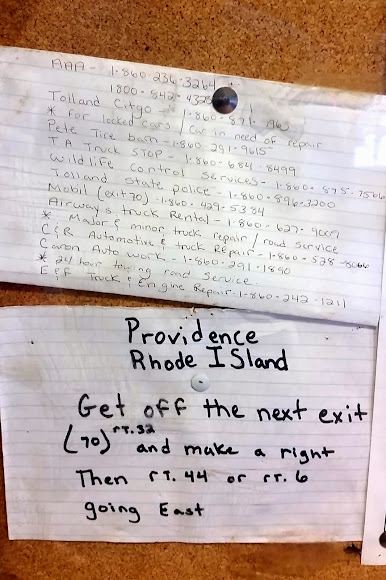 AAA - 1-860-236-3264
1800-842-4320
Tolland Citgo - 1-860-871-
* for locked cars / car in need of repair
Pete Tire barn - 1-860-291-9615
T.A Truck STOP - 1-860-684-8499
Wildlife Control Services - 1-860-875-7566
Tolland State police - 1-860-896-3200
Mobil (exit 70) - 1-860-429-5384
Airways truck Rental - 1-860-627-9009
* Major & minor truck repair / road service
C&R Automotive & truck Repair - 1-860-528-8066
Canon Auto work - 1-860-291-1890
* 24 hour towing road service
E&F Truck & Engine Repair - 1-860-242-1211
Providence
Rhode ISland
Get off the next exit
(70) rT.32 and make a right
Then rT. 44 or rT. 6
going East